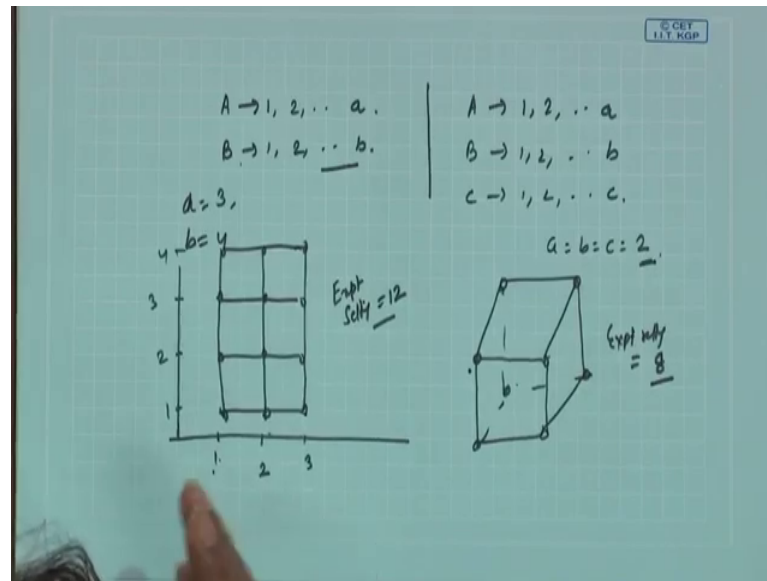 © CET
I.I.T. KGP
A → 1, 2, .. a.
B → 1, 2, .. b.
a = 3,
b = 4
4
3
2
1
1
2
3
Expt
= 12
A → 1, 2, .. a
B → 1, 2, .. b
C → 1, 2, .. c.
a = b = c = 2.
Expt
= 8